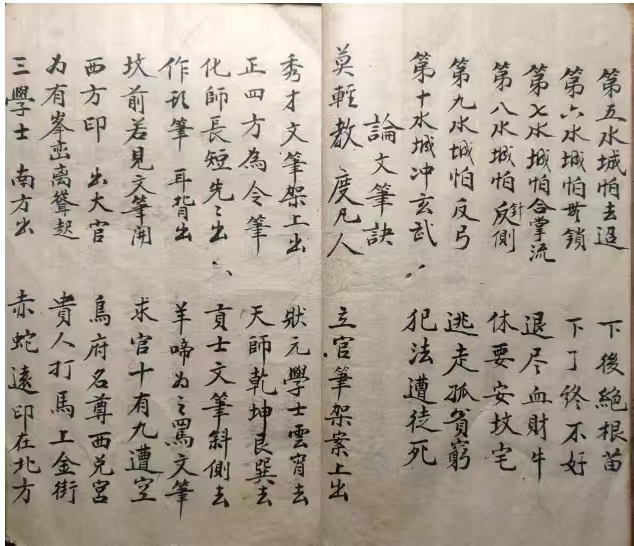 第五水城怕去迢 下後絕根苗
第六水城怕無鎖 下了終不好
第七水城怕合掌流 退尽血財牛
第八水城怕反針側 休要安坟宅
第九水城怕反弓 逃走孤貧窮
第十水城冲玄武 犯法遭徒死
論文筆訣
莫輕教度凡人 立官筆架案上出
秀才文筆架上出 狀元學士雲宵去
正四方為令筆 天師乾坤艮巽去
化師長短先々出 貢士文筆斜側去
作形筆耳皆出 羊啼為之罵文筆
坟前若見文筆開 求官十有九遭空
西方印 出大官 烏府名尊西兌宮
为有峯巒離聳起 貴人打馬上金街
三學士 南方出 赤蛇遠印在北方